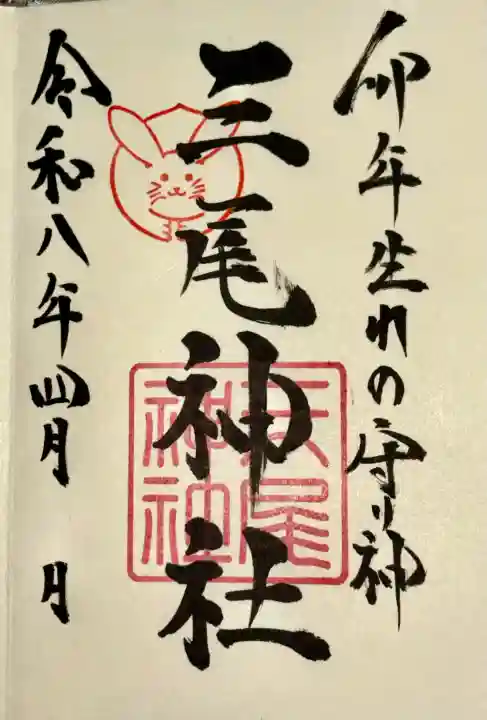 卯年生れの守り神
三尾神社
三尾神社
令和八年四月 日